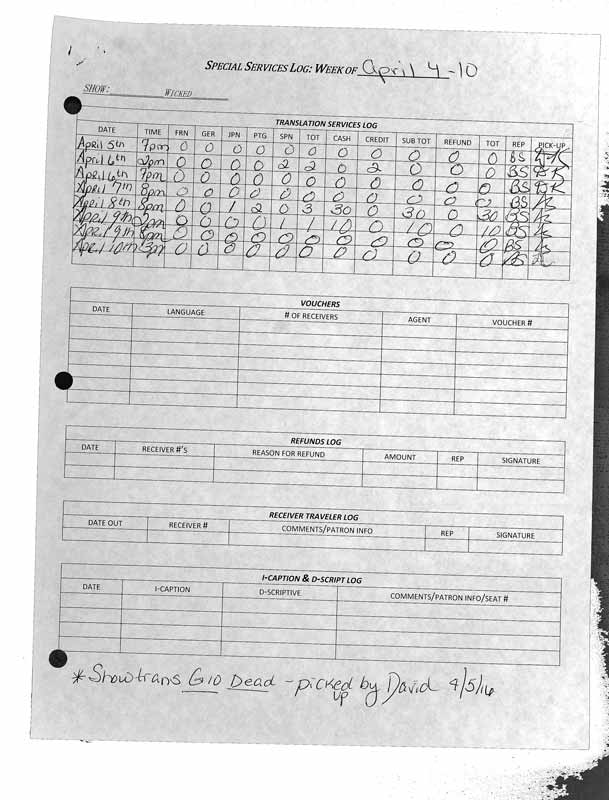 SPECIAL SERVICES LOG: WEEK OF April 4-10
SHOW: WICKED
TRANSLATION SERVICES LOG
DATE TIME FRN GER JPN PTG SPN TOT CASH CREDIT SUB TOT REFUND TOT REP PICK-UP
April 5th 7pm 0 0 0 0 0 0 0 0 0 0 0 BS
April 6th 2pm 0 0 0 0 2 2 0 2 0 0 0 BS
April 6th 7pm 0 0 0 0 0 0 0 0 0 0 0 BS
April 7th 8pm 0 0 0 0 0 0 0 0 0 0 0 BS
April 8th 8pm 0 0 1 2 0 3 30 0 30 0 30 BS
April 9th 2pm 0 0 0 0 1 1 10 0 10 0 10 BS
April 9th 8pm 0 0 0 0 0 0 0 0 0 0 0 BS
April 10th 3pm 0 0 0 0 0 0 0 0 0 0 0 BS
VOUCHERS
DATE LANGUAGE # OF RECEIVERS AGENT VOUCHER #
REFUNDS LOG
DATE RECEIVER #'S REASON FOR REFUND AMOUNT REP SIGNATURE
RECEIVER TRAVELER LOG
DATE OUT RECEIVER # COMMENTS/PATRON INFO REP SIGNATURE
I-CAPTION & D-SCRIPT LOG
DATE I-CAPTION D-SCRIPTIVE COMMENTS/PATRON INFO/SEAT #
* Showtrans G10 Dead - picked up by David 4/5/16